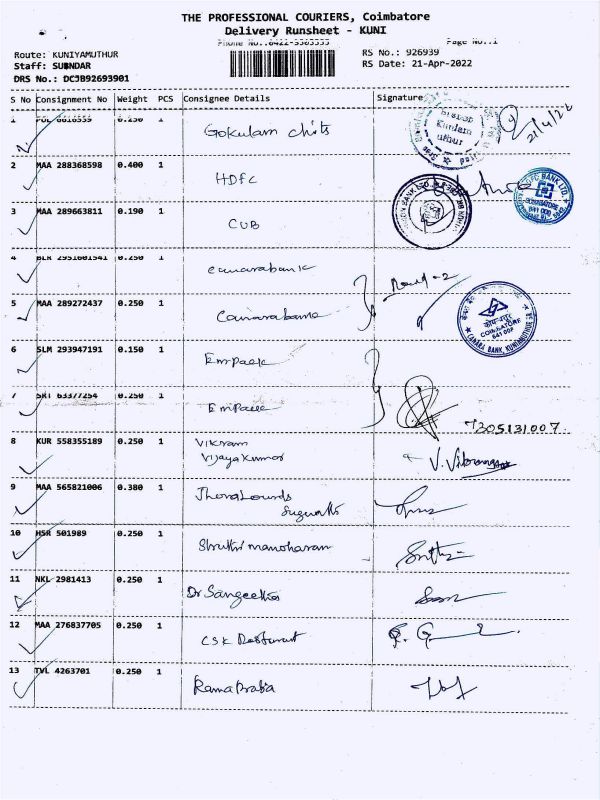 THE PROFESSIONAL COURIERS, Coimbatore
Delivery Runsheet - KUNI
Phone No.:0422-3303333
Page No.:1
Route: KUNIYAMUTHUR
RS No.: 926939
Staff: SUNDAR
RS Date: 21-Apr-2022
DRS No.: DCJB92693901
S No Consignment No Weight PCS Consignee Details Signature
1 0.250 1 Gokulam chits 21/4/22
2 MAA 288368598 0.400 1 HDFC
3 MAA 289663811 0.190 1 CUB
4 BLR 2951601541 0.250 1 canarabank
5 MAA 289272437 0.250 1
CANARA BANK, KUNIAMUTHUR
COIMBATORE
6 SLM 293947191 0.150 1 Empack
7 SRI 63377254 0.250 1
7305131007
8 KUR 558355189 0.250 1 Vikram
Vijaya Kumar
9 MAA 565821006 0.380 1
10 HSR 501989 0.250 1 Shruthi manoharan
11 NKL 2981413 0.250 1 Dr Sangeetha
12 MAA 276837705 0.250 1 CSK Restaurant
13 TVL 4263701 0.250 1 Rama Prabha